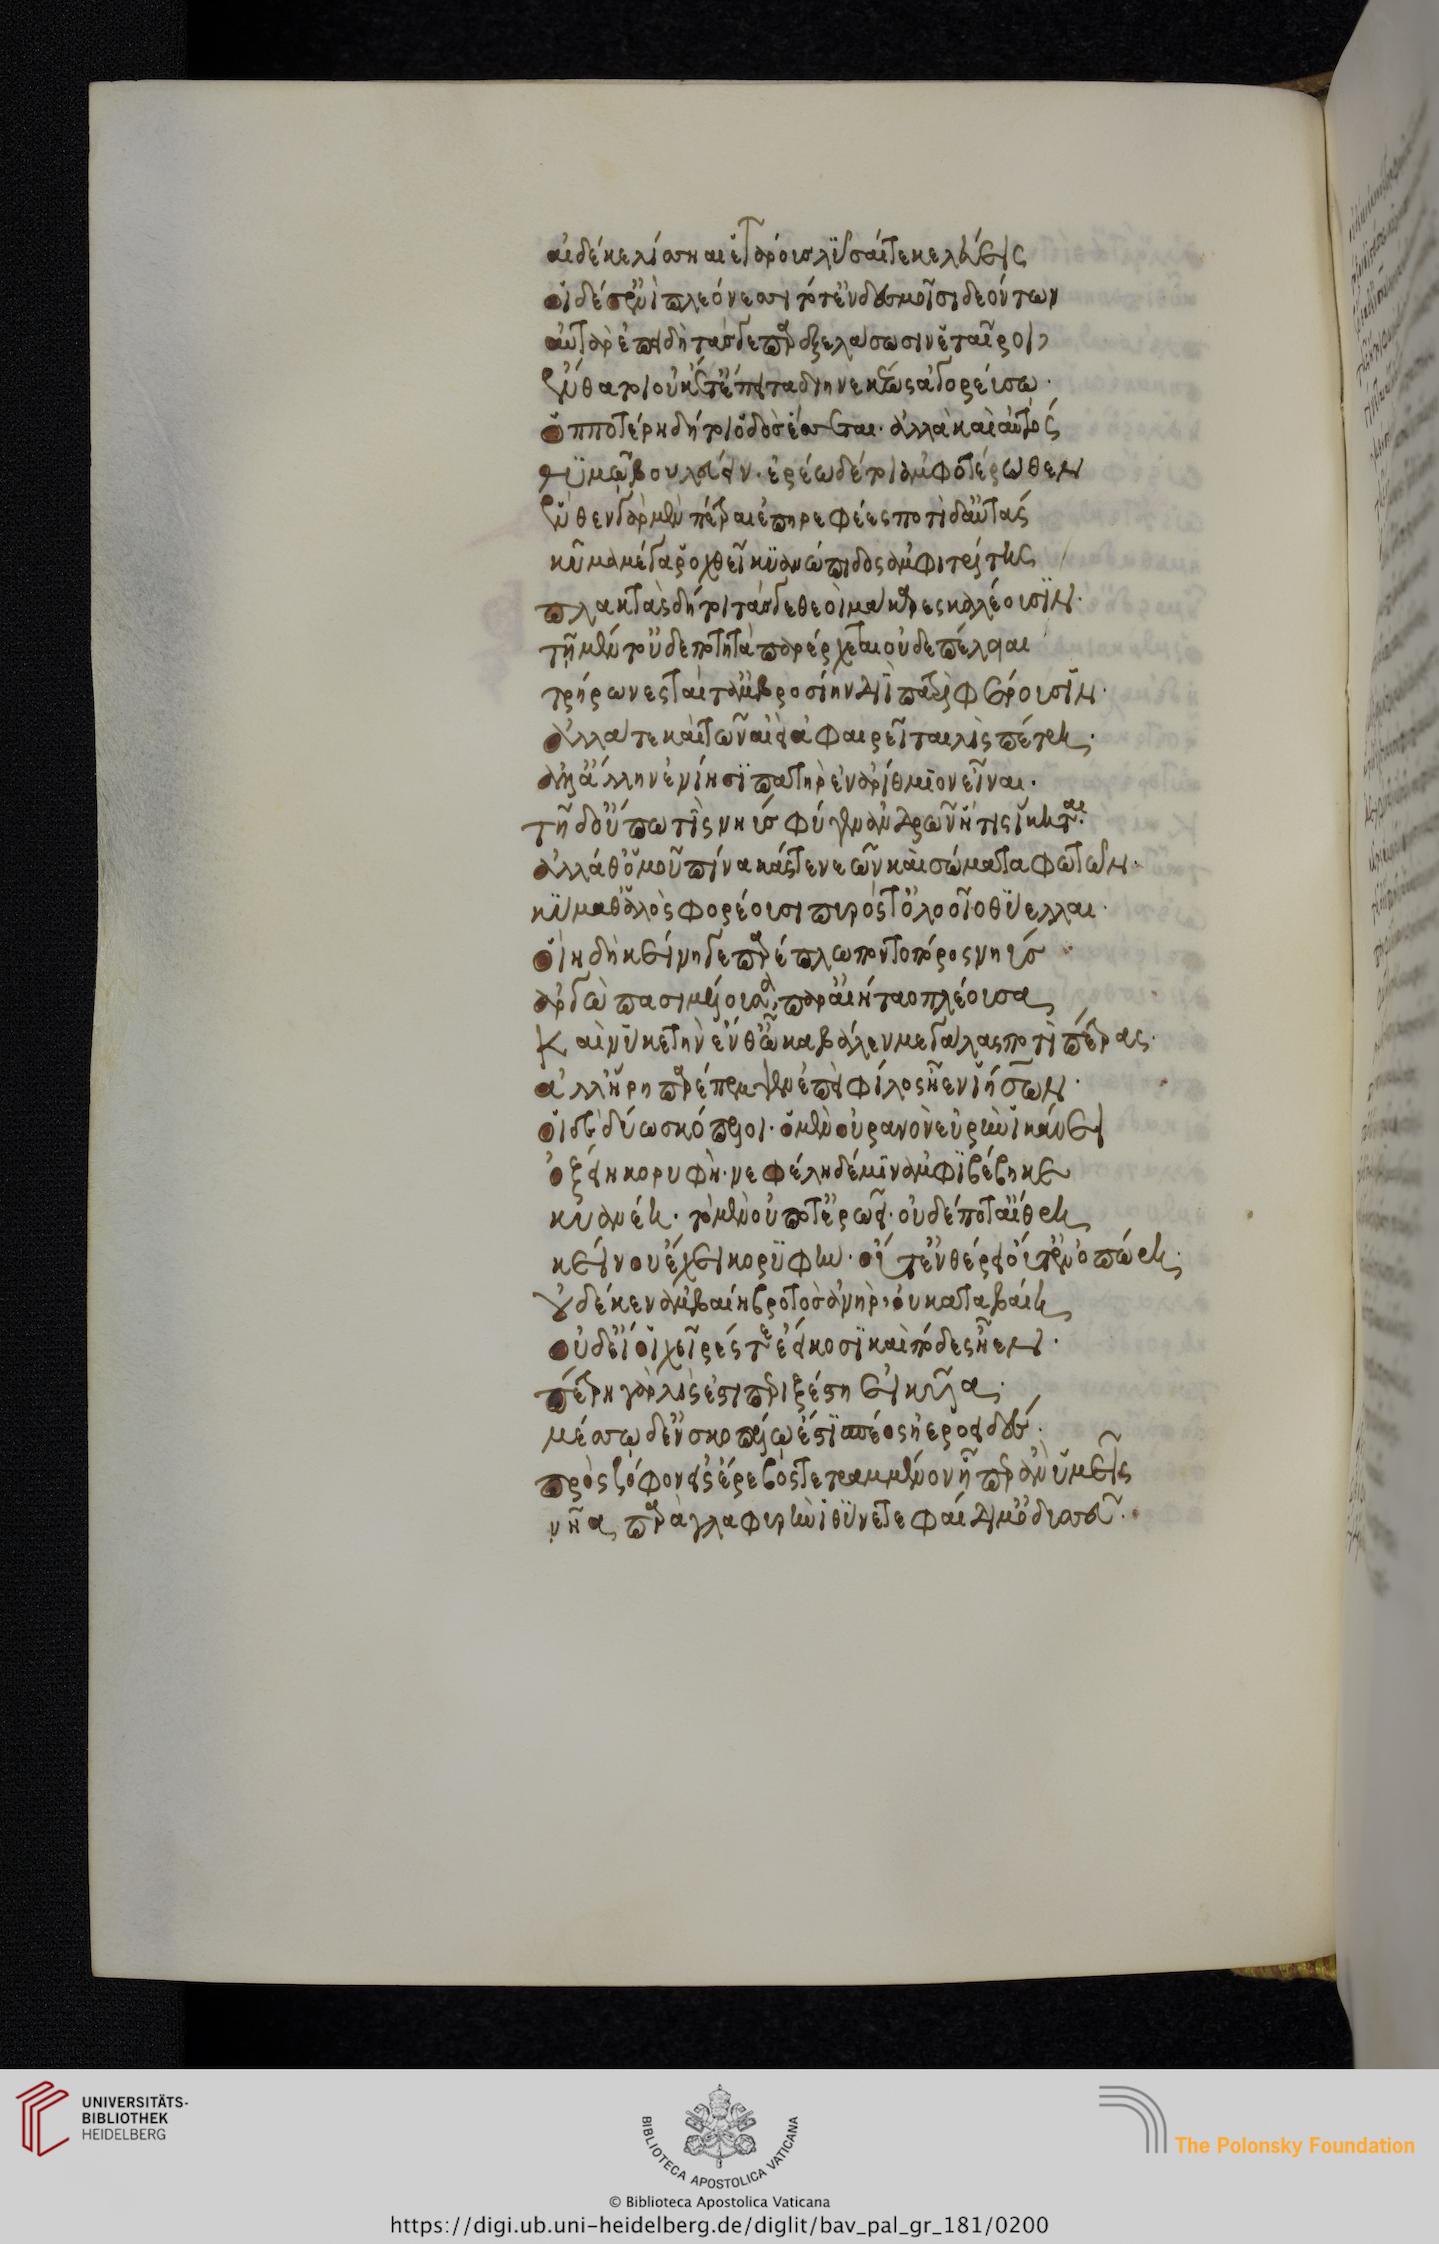 αἰ δέ κε λίσσηαι ἑτάρους λῦσαί τε κελεύεις
οἱ δέ σ' ἐνὶ πλεόνεσσι τότ' ἐν δεσμοῖσι δεόντων
αὐτὰρ ἐπειδὴ τάσδε παρὲξ ἐλάσωσιν ἑταῖροι
ἔνθα τοι οὐκέτ' ἔπειτα διηνεκέως ἀγορεύσω.
ὁπποτέρη δή τοι ὁδὸς ἔσσεται. ἀλλὰ καὶ αὐτός
θυμῶ βουλεύειν. ἐρέω δέ τοι ἀμφοτέρωθεν
ἔνθεν γὰρ μὲν πέτραι ἐπηρεφέες ποτὶ δ' αὐτάς
κῦμα μέγα ῥοχθεῖ κυανώπιδος ἀμφιτρίτης
πλαγκτὰς δή τοι τάσδε θεοὶ μάκαρες καλέουσιν.
τῇ μέν τ' οὐδὲ ποτητὰ παρέρχεται οὐδὲ πέλειαι
τρήρωνες ταί τ' ἀμβροσίην διῒ πατρὶ φέρουσιν.
ἀλλά τε καὶ τῶν αἰεὶ ἀφαιρεῖται λὶς πέτρη.
ἀλλ' ἄλλην ἐνίησι πατὴρ ἐναρίθμιον εἶναι.
τῇ δ' οὔπω τὶς νηῦς φύγεν ἀνδρῶν ἥτις ἵκηται.
ἀλλά θ' ὁμοῦ πίνακάς τε νεῶν καὶ σώματα φωτῶν.
κύμαθ' ἁλὸς φορέουσι πυρός τ' ὀλοοῖο θύελλαι.
οἴη δὴ κείνη γε παρέπλω ποντοπόρος νηῦς
ἀργὼ πασιμέλουσα, παρ' αἰήταο πλέουσα,
Καὶ νύ κε τὴν ἔνθ' ὦκα βάλεν μεγάλας ποτὶ πέτρας.
ἀλλ' ἥρη παρέπεμψεν ἐπεὶ φίλος ἦεν ἰήσων.
οἱ δὲ δύω σκόπελοι. ὁ μὲν οὐρανὸν εὐρὺν ἱκάνει
ὀξείη κορυφῇ. νεφέλη δέ μιν ἀμφιβέβηκε
κυανέη. τὸ μὲν οὔποτ' ἐρωεῖ. οὐδέποτ' αἴθρη
κείνου ἔχει κορυφὴν. οὔτ' ἐν θέρει οὔτ' ἐν ὀπώρη.
οὐδέ κεν ἀμβαίη βροτὸς ἀνὴρ. οὐ καταβαίη,
οὐδ' εἴ οἱ χεῖρές τε ἐείκοσι καὶ πόδες ἦεν.
πέτρη γὰρ λὶς ἐστι περιξέστη εἰκυῖα.
μέσσῳ δ' ἐν σκοπέλῳ ἐστὶ σπέος ἠεροειδές.
πρὸς ζόφον εἰς ἔρεβος τετραμμένον ᾗπερ ἂν ὑμεῖς
νῆα, παρὰ γλαφυρὴν ἰθύνετε φαίδιμ' ὀδυσσεῦ.
UNIVERSITÄTS-
BIBLIOTHEK
HEIDELBERG
BIBLIOTECA APOSTOLICA VATICANA
The Polonsky Foundation
© Biblioteca Apostolica Vaticana
https://digi.ub.uni-heidelberg.de/diglit/bav_pal_gr_181/0200